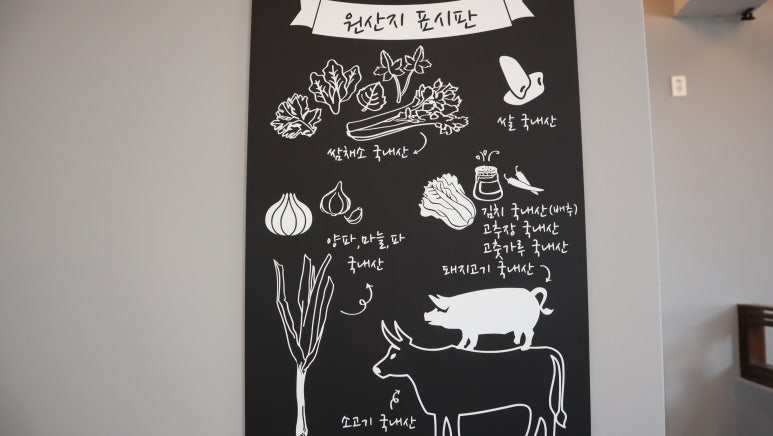 원산지 표시판
쌀 국내산
쌈채소 국내산
김치 국내산(배추)
고추장 국내산
고춧가루 국내산
양파,마늘,파
국내산
돼지고기 국내산
소고기 국내산